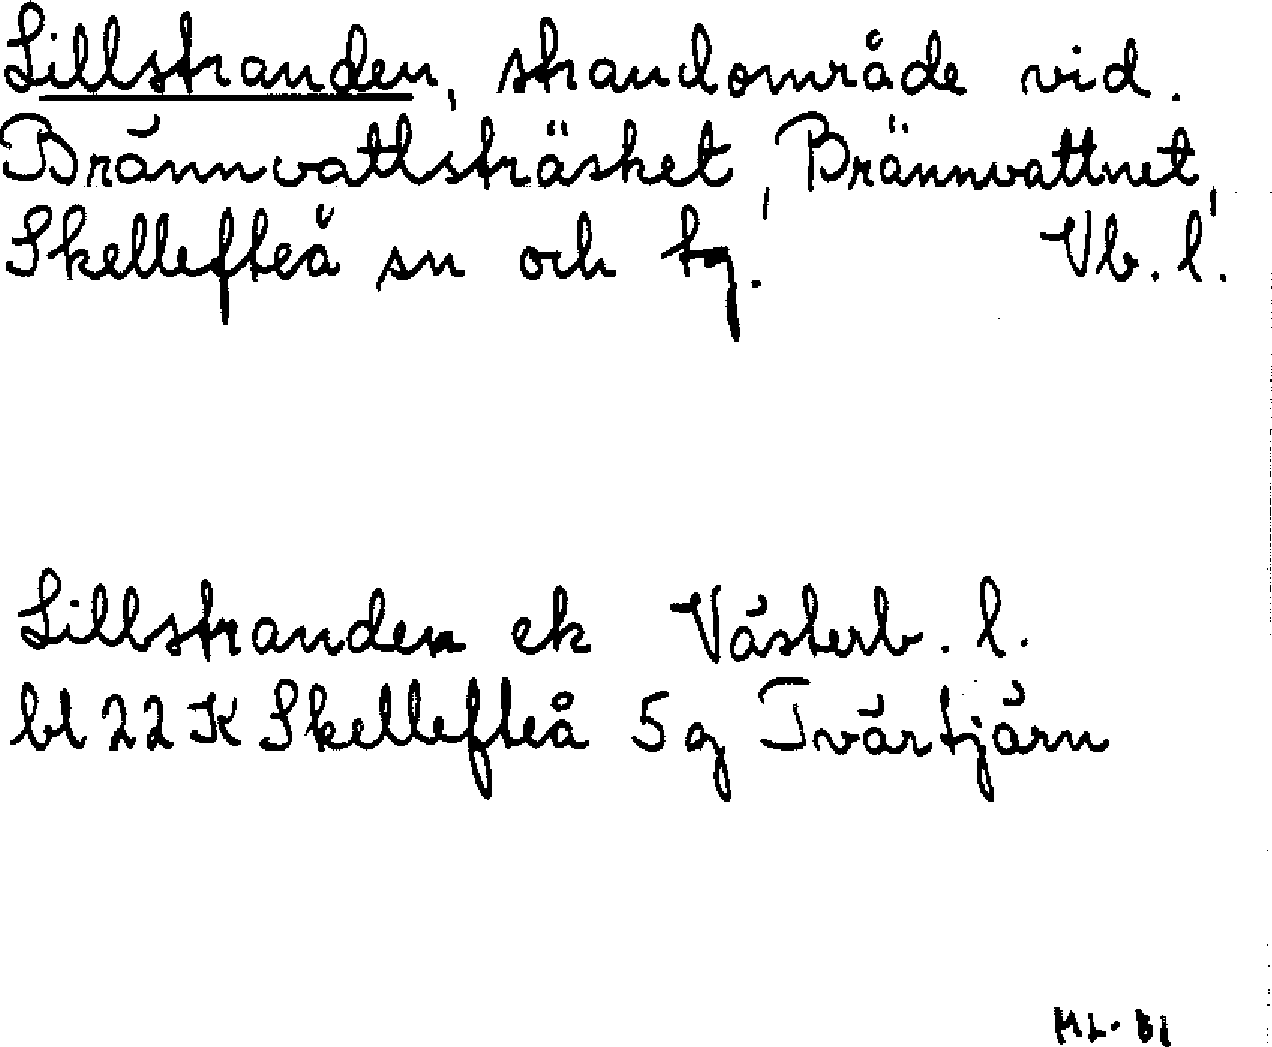 Lillstranden, strandområde vid.
Brännvattsträsket, Brännvattnet,
Skellefteå sn och tg. Vb. l.
Lillstranden ek Västerb. l.
bl 22 K Skellefteå 5g Tvärtjärn